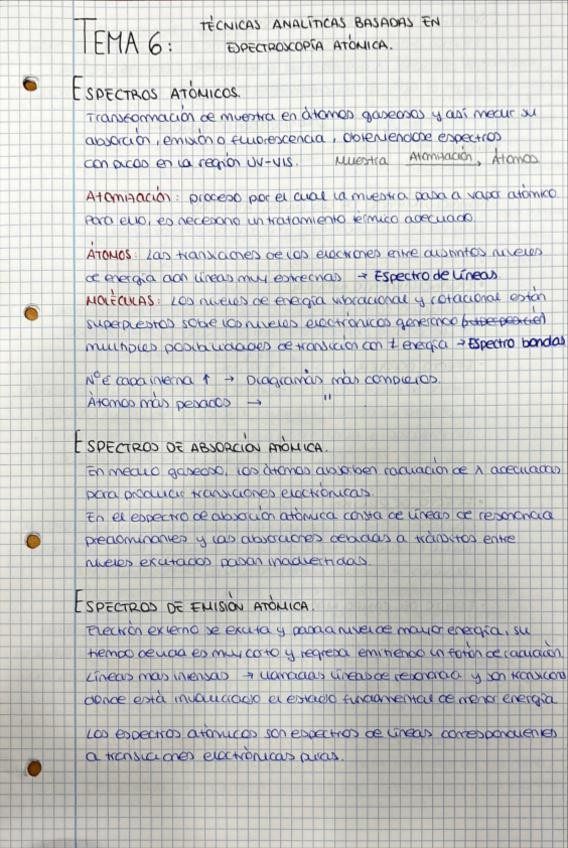 TEMA 6: TÉCNICAS ANALÍTICAS BASADAS EN
ESPECTROSCOPÍA ATÓMICA.
ESPECTROS ATÓMICOS.
Transformación de muestra en átomos gaseosos y así medir su
absorción, emisión o fluorescencia, obteniéndose espectros
con picos en la región UV-VIS. Muestra Atomización, Átomos
Atomización: proceso por el cual la muestra pasa a vapor atómico.
Para ello, es necesario un tratamiento térmico adecuado
ÁTOMOS: Las transiciones de los electrones entre distintos niveles
de energía dan líneas muy estrechas → Espectro de Líneas
MOLÉCULAS: Los niveles de energía vibracional y rotacional están
superpuestos sobre los niveles electrónicos generando
múltiples posibilidades de transición con ≠ energía → Espectro bandas
Nº é capa interna ↑ → Diagramas más complejos.
Átomos más pesados → "
ESPECTROS DE ABSORCIÓN ATÓMICA.
En medio gaseoso, los átomos absorben radiación de λ adecuadas
para producir transiciones electrónicas.
En el espectro de absorción atómica consta de líneas de resonancia
predominantes y las absorciones debidas a tránsitos entre
niveles excitados pasan inadvertidas.
ESPECTROS DE EMISIÓN ATÓMICA.
Electrón externo se excita y pasa a nivel de mayor energía, su
tiempo de vida es muy corto y regresa emitiendo un fotón de radiación.
Líneas más intensas → llamadas líneas de resonancia y son
donde está involucrado el estado fundamental de menor energía
Los espectros atómicos son espectros de líneas correspondientes
a transiciones electrónicas puras.